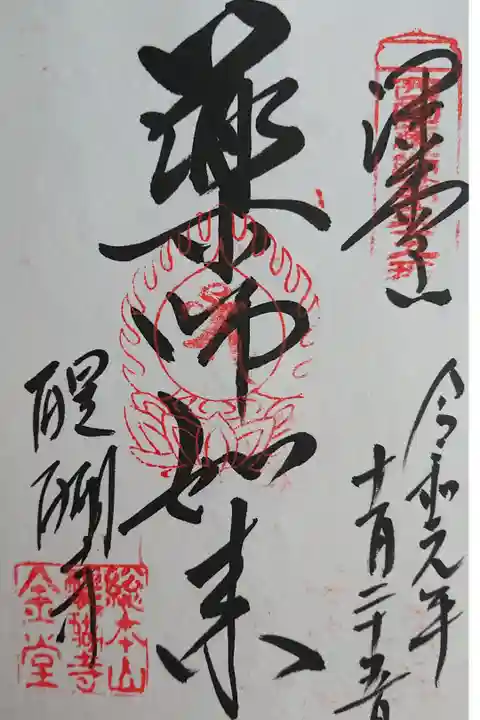 深雪山
令和元年
十一月二十五日
薬師如来
醍醐寺
総本山
醍醐寺
金堂